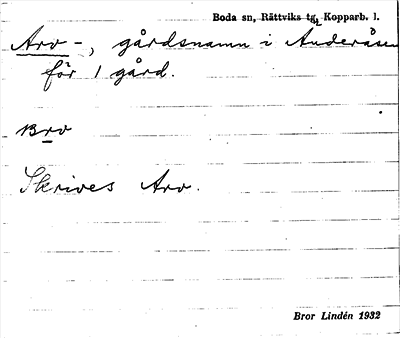 Boda sn, Rättviks tg, Kopparb. l.
Arv-, gårdsnamn i Anderåsen
för 1 gård.
Skrives Arv.
Bror Lindén 1932